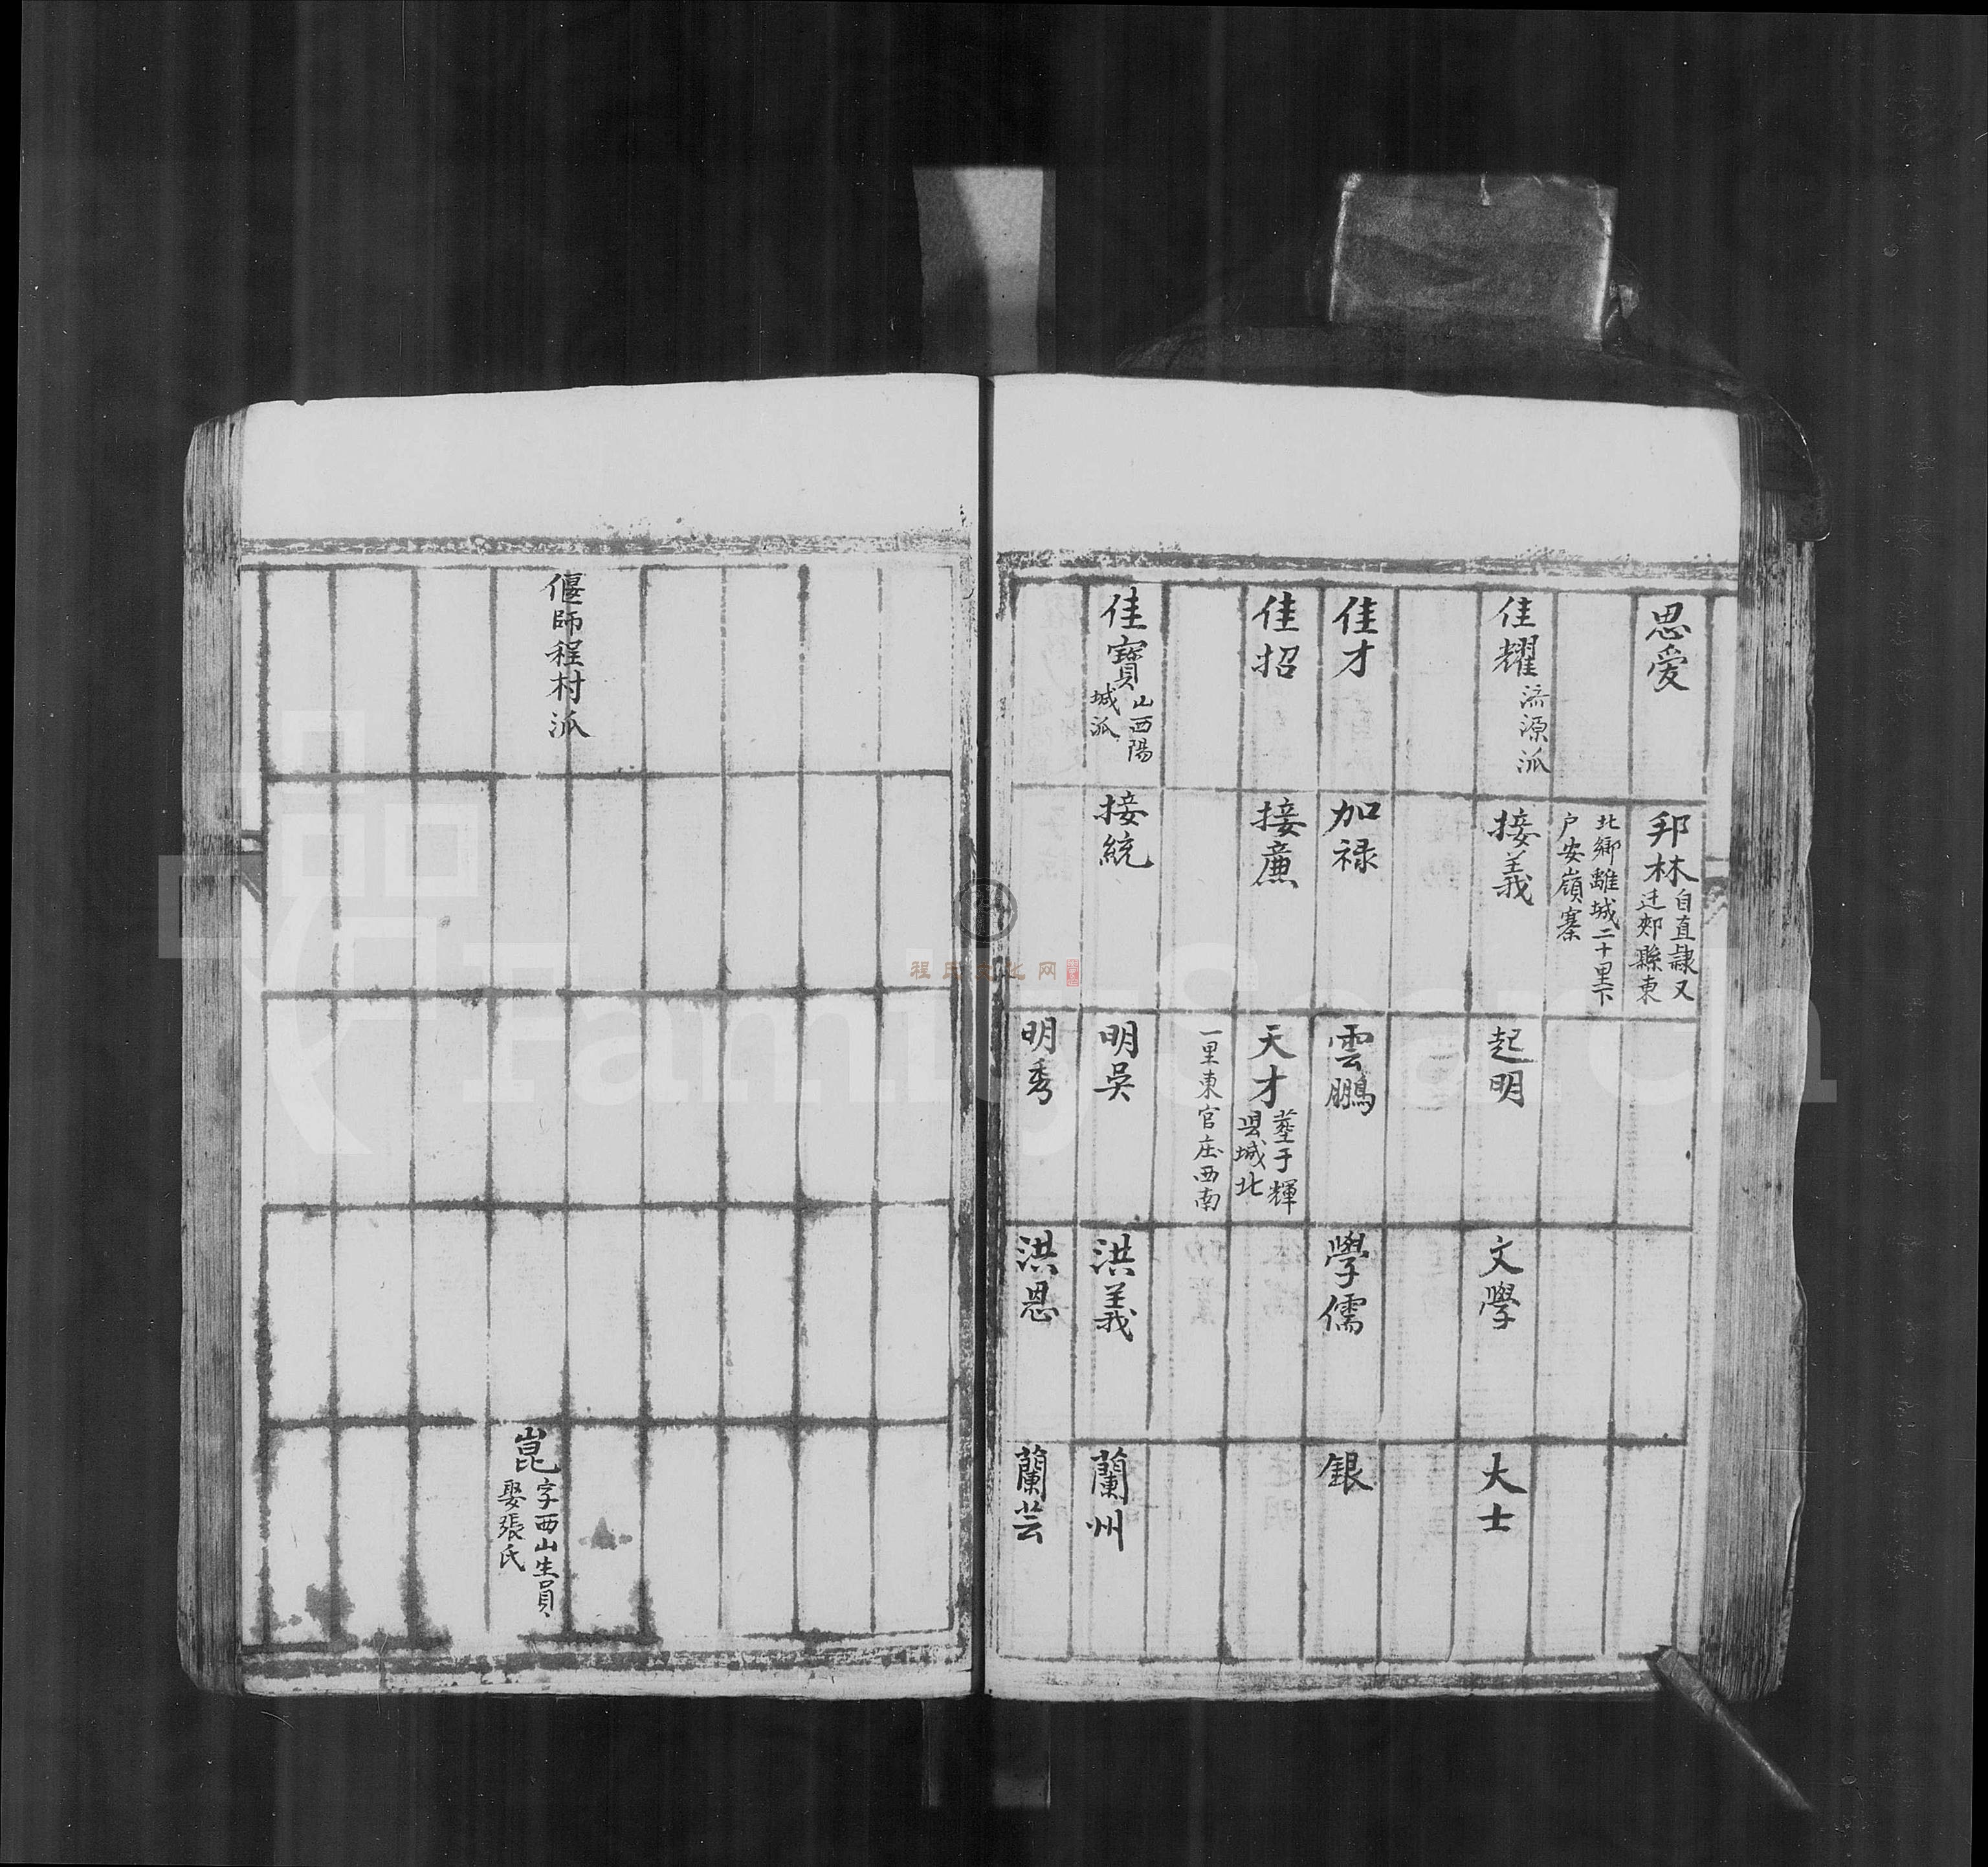 思爱
邦林自直隷又
迁郟縣東
北鄉離城二十里下
户安嶺寨
佳耀济源派
接義
起明
文學
大士
佳才
加禄
雲鵬
學儒
銀
佳招
接廉
天才塟于輝
县城北
一里東官庄西南
佳寶山西陽
城派
接統
明吴
洪義
蘭州
明秀
洪恩
蘭芸
偃師程村派
崑字西山生員
娶張氏
程氏文化网
FamilySearch